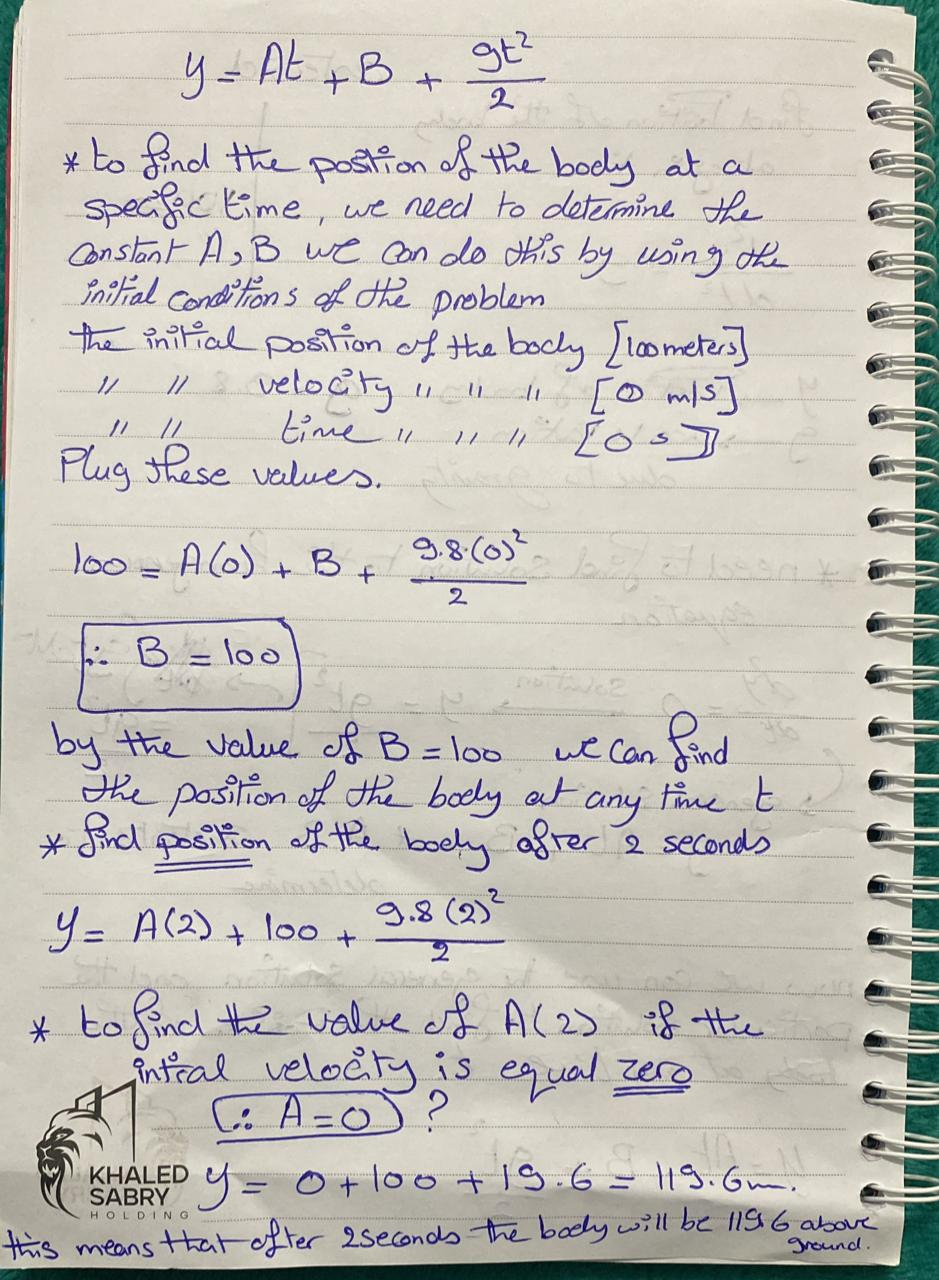 y = At + B + gt²/2
* to find the position of the body at a
specific time, we need to determine the
constant A, B we can do this by using the
initial conditions of the problem
the initial position of the body [100 meters]
" " velocity " " " [0 m/s]
" " time " " " [0 s]
Plug these values.
100 = A(0) + B + 9.8(0)²/2
∴ B = 100
by the value of B = 100 we can find
the position of the body at any time t
* find position of the body after 2 seconds
y = A(2) + 100 + 9.8(2)²/2
* to find the value of A(2) if the
intial velocity is equal zero
∴ A = 0 ?
y = 0 + 100 + 19.6 = 119.6m.
this means that after 2 seconds the body will be 119.6 above
ground.
KHALED
SABRY
HOLDING